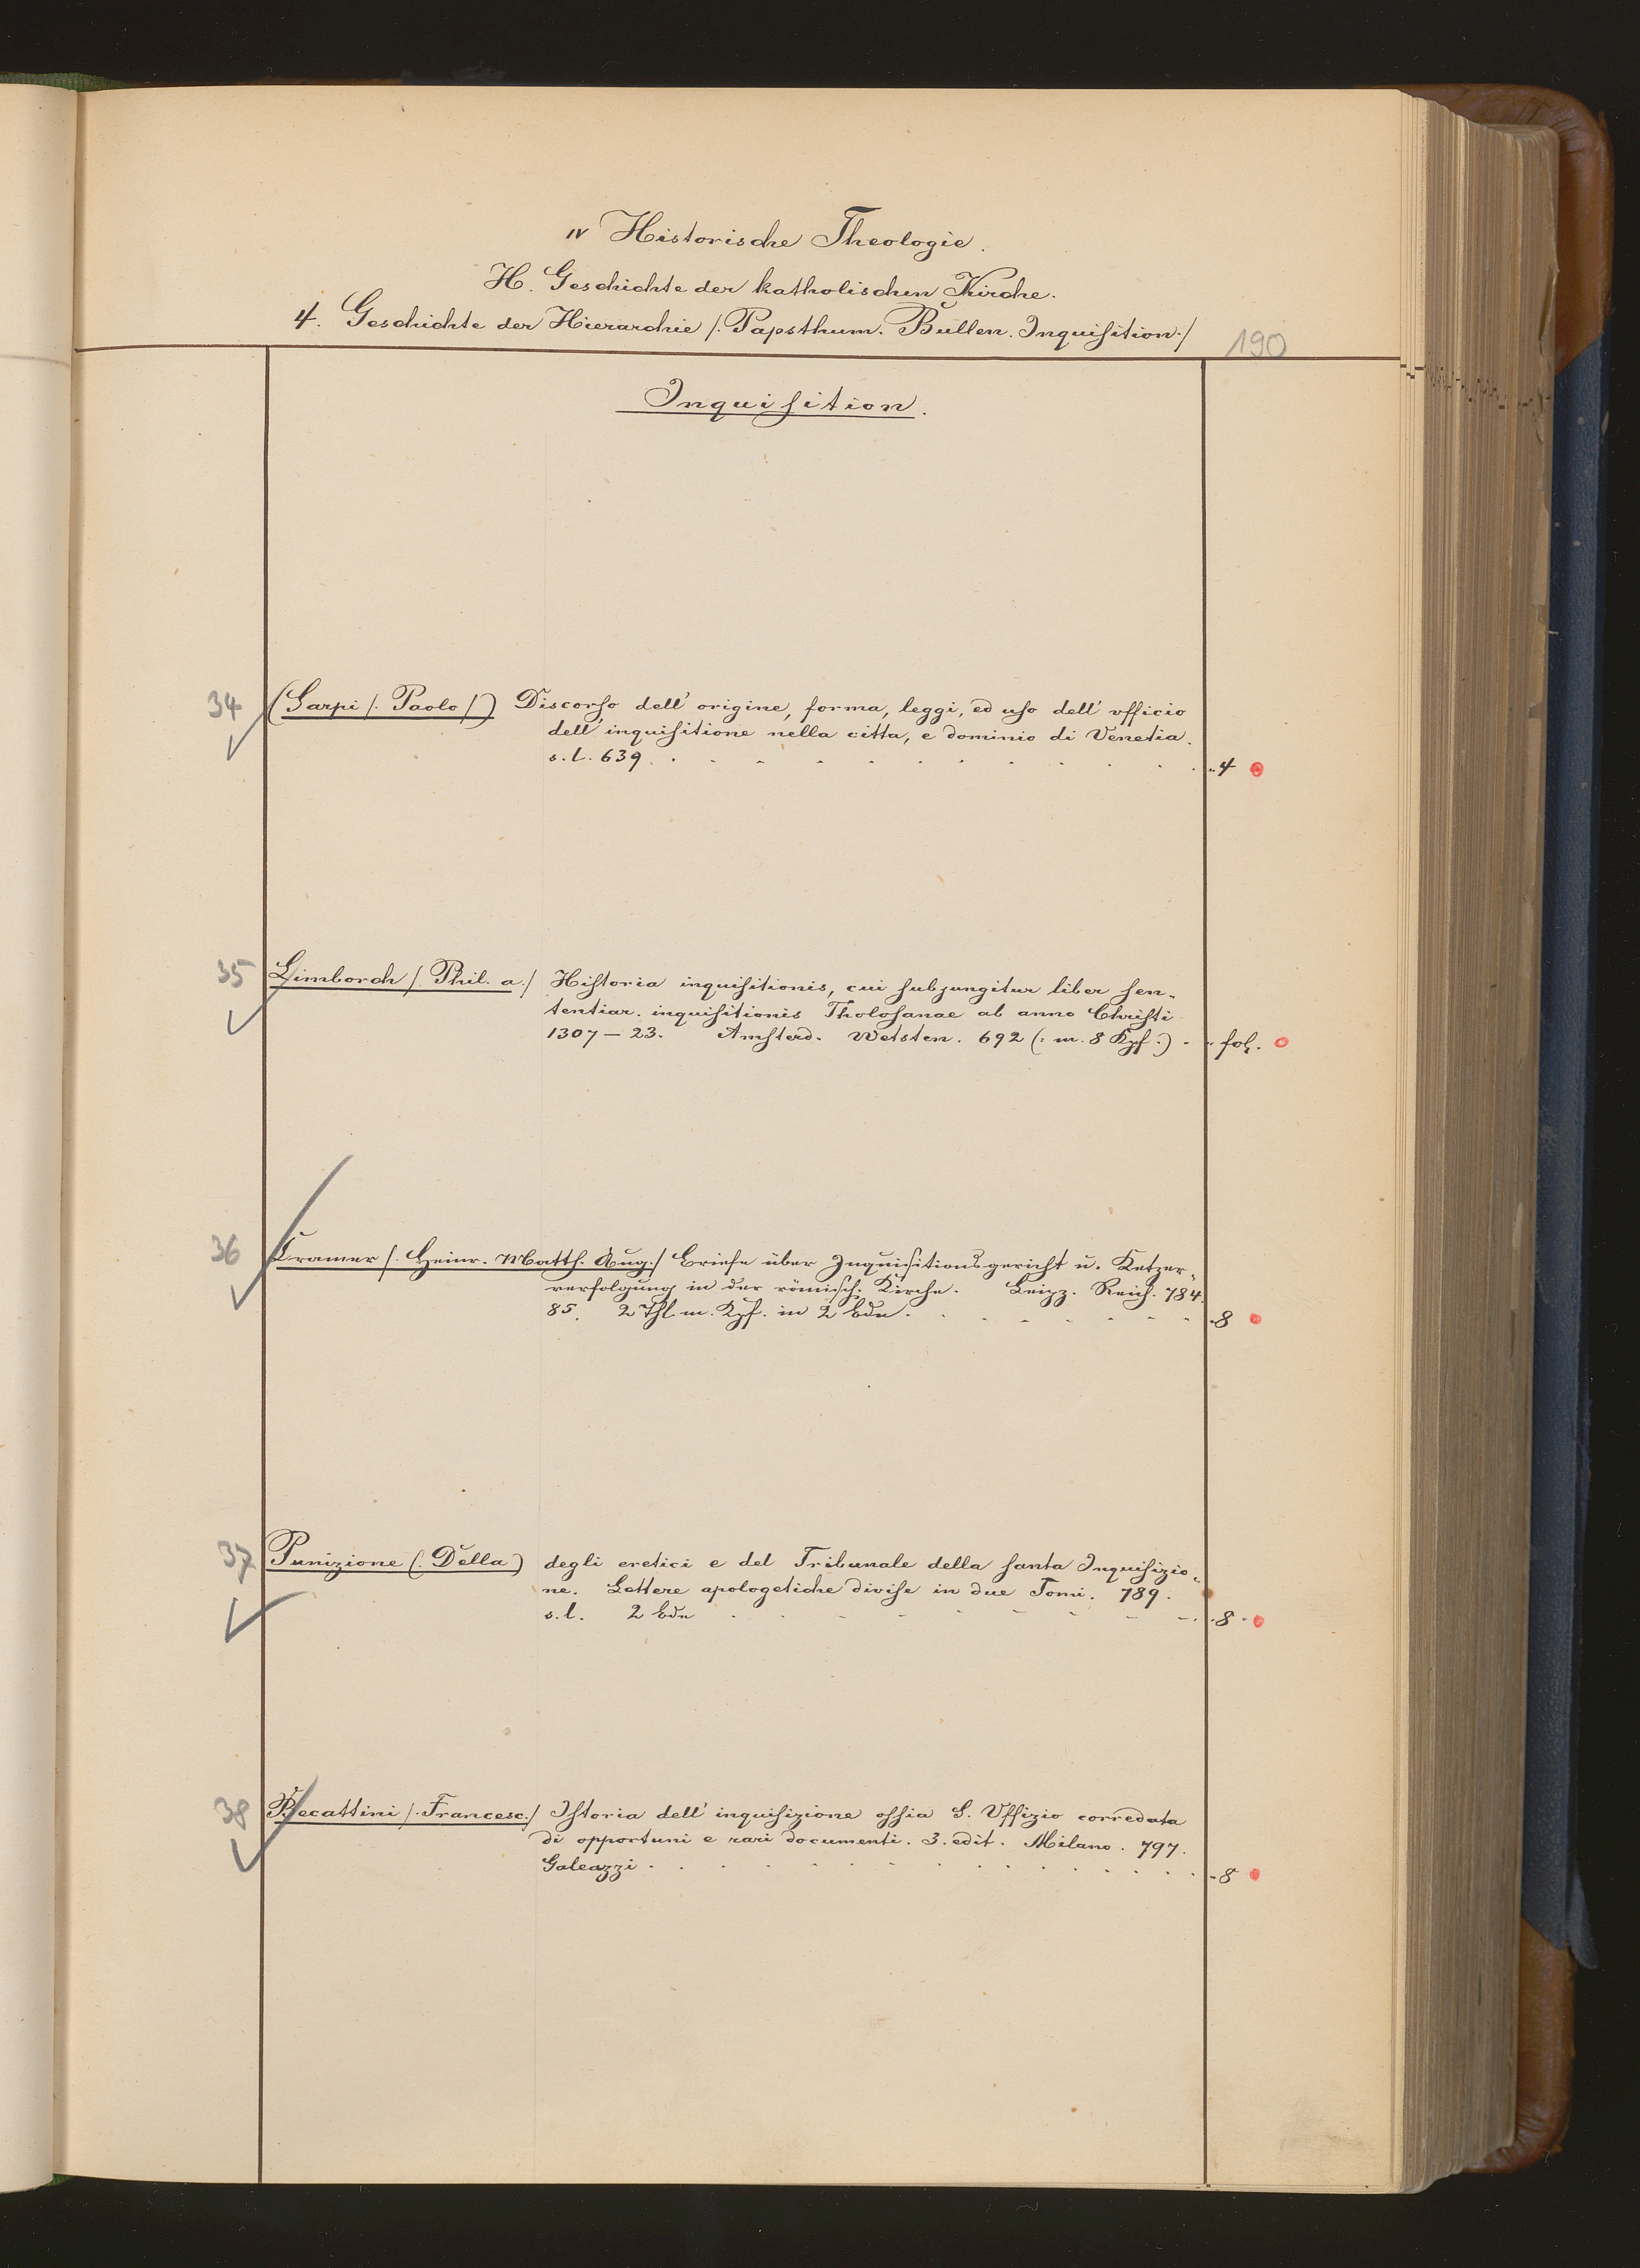 IV Historische Theologie.
H. Geschichte der katholischen Kirche.
4. Geschichte der Hierarchie /: Papsthum. Bullen. Inquisition :/
190
Inquisition.
34 (Sarpi /: Paolo /) Discorso dell' origine, forma, leggi, ed uso dell' ufficio
dell' inquisitione nella citta, e dominio di Venetia.
s.l. 639. 4
35 Limborch /: Phil. a :/ Historia inquisitionis, cui subjungitur liber sen-
tentiar. inquisitionis Tholosanae ab anno Christi
1307–23. Amsterd. Wetsten. 692 (: m. 8 Kpf :) fol.
36 Cramer /: Heinr. Matth. Aug. / Briefe über Inquisitionsgericht u. Ketzer-
verfolgung in der römisch. Kirche. Leipz. Reich. 784.
85. 2 Thl. m. Kpf. in 2 bdn. 8
37 Punizione (: Della ) degli eretici e del Tribunale della santa Inquisizio-
ne. Lettere apologetiche divise in due Tomi. 789.
s.l. 2 bdn 8
38 Becattini /: Francesc. :/ Istoria dell' inquisizione ossia S. Uffizio corredata
di opportuni e rari documenti. 3. edit. Milano. 797.
Galeazzi 8